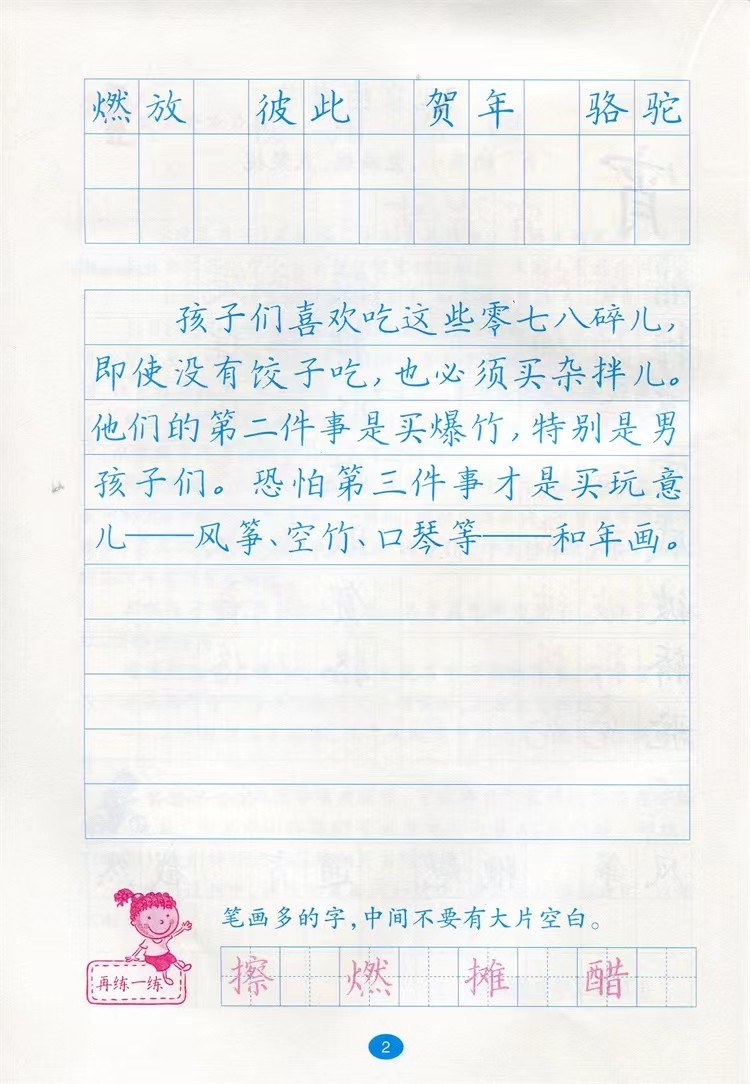 燃放 彼此 贺年 骆驼
孩子们喜欢吃这些零七八碎儿，
即使没有饺子吃，也必须买杂拌儿。
他们的第二件事是买爆竹，特别是男
孩子们。恐怕第三件事才是买玩意
儿——风筝、空竹、口琴等——和年画。
笔画多的字，中间不要有大片空白。
再练一练
擦 燃 摊 醋
2